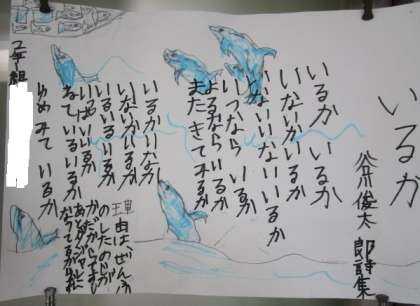 いるか
谷川俊太郎詩集
いるか いるか
いないか いるか
いないいないいるか
いつなら いるか
よるなら いるか
またきてみるか
いるかいないか
いないかいるか
いるいるいるか
いっぱいいるか
ねているいるか
ゆめみているか
理由は、ぜんぶ
2年 組